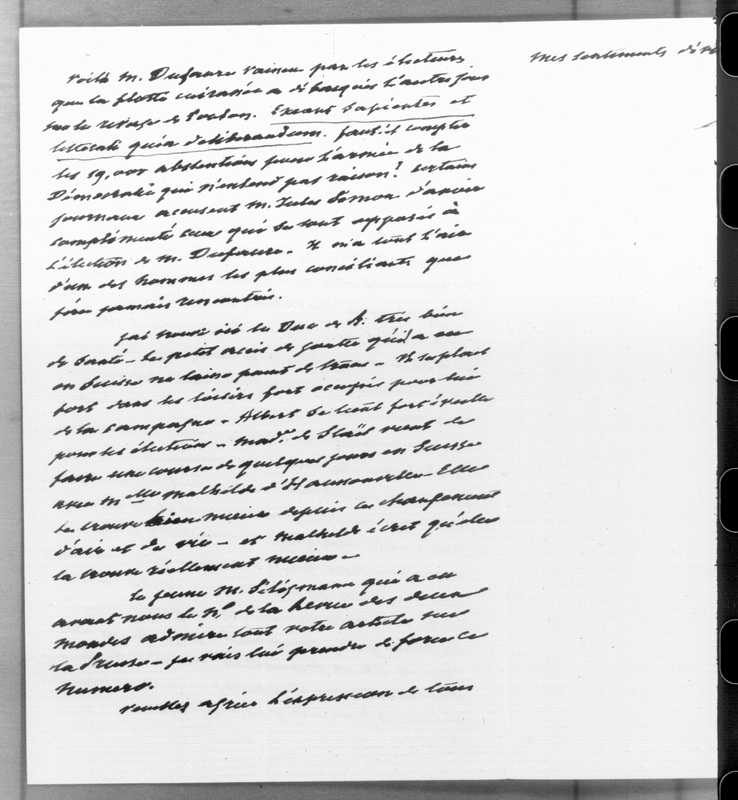 Voilà M. Dufaure vaincu par les électeurs
que la flotte cuirassée a débarqués l'autre jour
sur le rivage de Toulon. Exeant sapientes et
litterati quia deliberandum. Faut-il compter
les 19,000 abstentions pour l'armée de la
Démocratie qui n'entend pas raison? Certains
journaux accusent M. Jules Simon d'avoir
complimenté ceux qui se sont opposés à
l'élection de M. Dufaure. Il m'a tout l'air
d'un des hommes les plus conciliants que
j'aie jamais rencontrés.
J'ai trouvé ici le Duc de B. très bien
de santé – Le petit accès de goutte qu'il a eu
en Suisse ne laisse point de trace – Il se plaît
fort dans les loisirs fort occupés pour lui
de la campagne – Albert se tient fort éveillé
pour les élections – Mad.e de Staël vient de
faire une course de quelques jours en Suisse
avec Mlle Mathilde d'Haussonville – Elle
la trouve bien mieux depuis ce changement
d'air et de vie – et Mathilde écrit qu'elle
la trouve réellement mieux –
Le jeune M. qui a eu
avant nous le No de la Revue des deux
mondes admire tout votre article sur
la Prusse – je vais lui prendre de force ce
numero.
Veuillez agréer l'expression de tous
mes sentiments